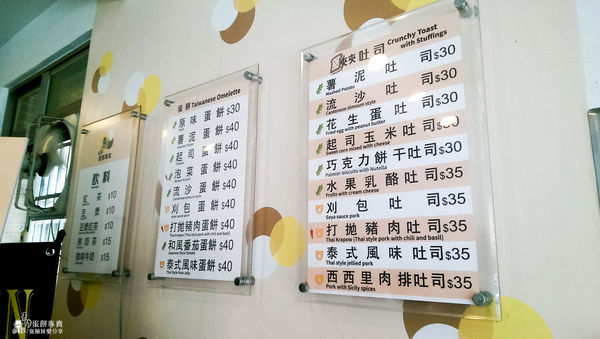 飲料
紅茶$10
豆漿$10
豆漿紅茶$10
鮮奶茶$15
咖啡牛奶$15
蛋餅 Taiwanese Omelette
原味蛋餅$30
薯泥蛋餅
起司蛋餅
泡菜蛋餅$40
流沙蛋餅$40
刈包蛋餅$40
打拋豬肉蛋餅$40
Thai Krapow (Thai style pork with chili and basil)
和風番茄蛋餅$40
Japanese Style Tomato
泰式風味蛋餅$40
Thai Style Pork Jelly
夾夾吐司 Crunchy Toast
with Stuffings
薯泥吐司$30
Mashed Potato
流沙吐司$30
Cantonese dimsum style
花生蛋吐司$30
Fried egg with peanut butter
起司玉米吐司$30
Sweet corn mixed with cheese
巧克力餅干吐司$30
Palmier biscuits with Nutella
水果乳酪吐司$35
Fruits with cream cheese
刈包吐司$35
Soya sauce pork
打拋豬肉吐司$35
Thai Krapow (Thai style pork with chili and basil)
泰式風味吐司$35
Thai style jellied pork
西西里肉排吐司$35
Pork with Sicily spices
蛋餅專賣
臭臉妹愛分享